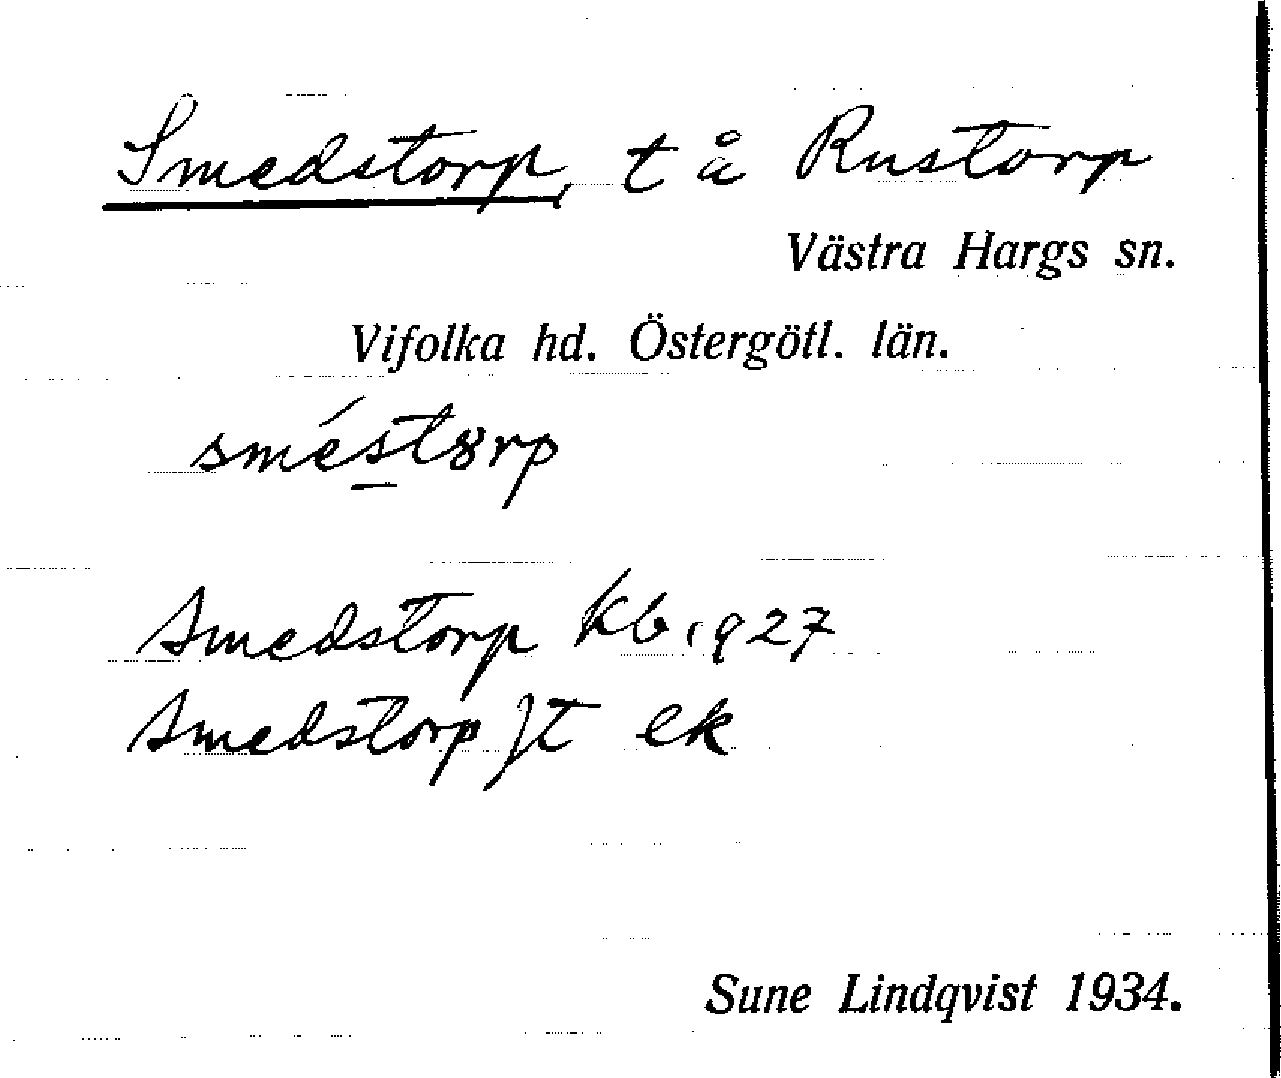 Smedstorp, t å Rustorp
Västra Hargs sn.
Vifolka hd. Östergötl. län.
sméstȣrp
Smedstorp Kb. 1927
Smedstorp ft ek
Sune Lindqvist 1934.